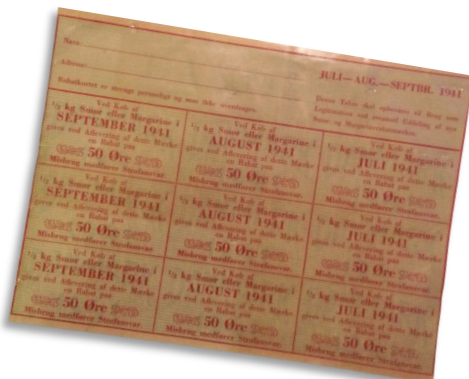 Navn:
Adresse:
Rabatkortet er strengt personligt og maa ikke overdrages.
JULI—AUG.—SEPTBR. 1941
Denne Talon skal opbevares til Brug som
Legitimation ved eventuel Uddeling af nye
Smør- og Margarinerabatmærker.
Ved Køb af
½ kg Smør eller Margarine i
SEPTEMBER 1941
gives ved Aflevering af dette Mærke
en Rabat paa
50 Øre
Misbrug medfører Strafansvar.
Ved Køb af
½ kg Smør eller Margarine i
AUGUST 1941
gives ved Aflevering af dette Mærke
en Rabat paa
50 Øre
Misbrug medfører Strafansvar.
Ved Køb af
½ kg Smør eller Margarine i
JULI 1941
gives ved Aflevering af dette Mærke
en Rabat paa
50 Øre
Misbrug medfører Strafansvar.
Ved Køb af
½ kg Smør eller Margarine i
SEPTEMBER 1941
gives ved Aflevering af dette Mærke
en Rabat paa
50 Øre
Misbrug medfører Strafansvar.
Ved Køb af
½ kg Smør eller Margarine i
AUGUST 1941
gives ved Aflevering af dette Mærke
en Rabat paa
50 Øre
Misbrug medfører Strafansvar.
Ved Køb af
½ kg Smør eller Margarine i
JULI 1941
gives ved Aflevering af dette Mærke
en Rabat paa
50 Øre
Misbrug medfører Strafansvar.
Ved Køb af
½ kg Smør eller Margarine i
SEPTEMBER 1941
gives ved Aflevering af dette Mærke
en Rabat paa
50 Øre
Misbrug medfører Strafansvar.
Ved Køb af
½ kg Smør eller Margarine i
AUGUST 1941
gives ved Aflevering af dette Mærke
en Rabat paa
50 Øre
Misbrug medfører Strafansvar.
Ved Køb af
½ kg Smør eller Margarine i
JULI 1941
gives ved Aflevering af dette Mærke
en Rabat paa
50 Øre
Misbrug medfører Strafansvar.